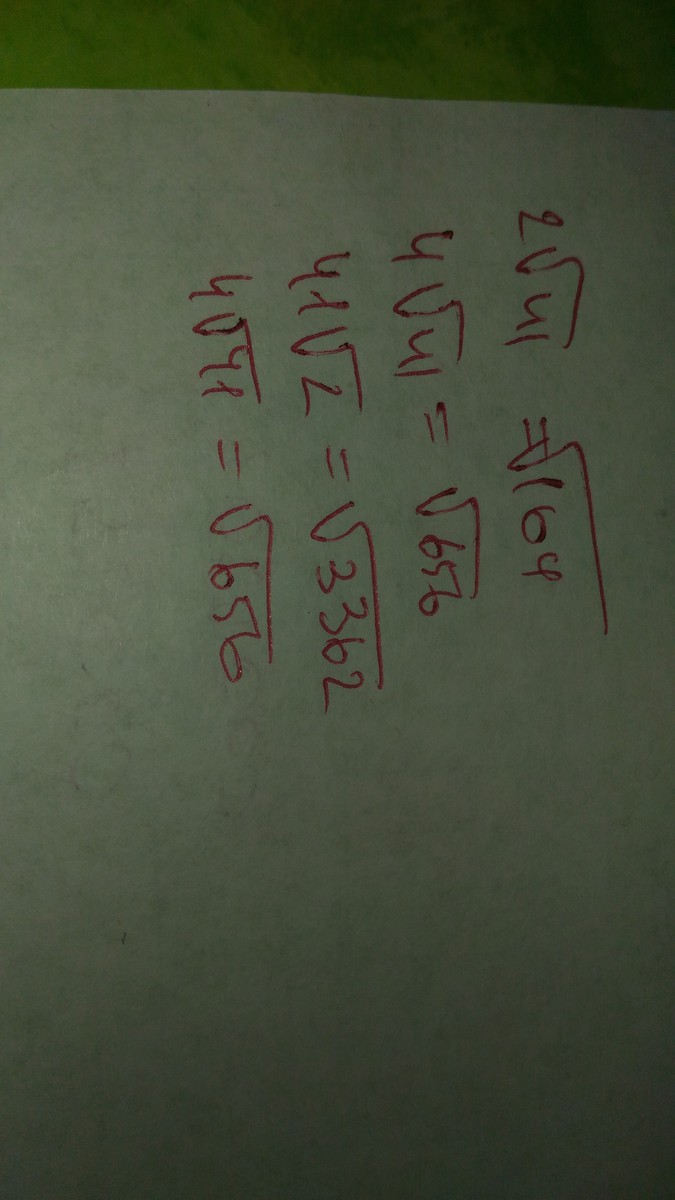 2√41 = √164
4√41 = √656
41√2 = √3362
4√41 = √656